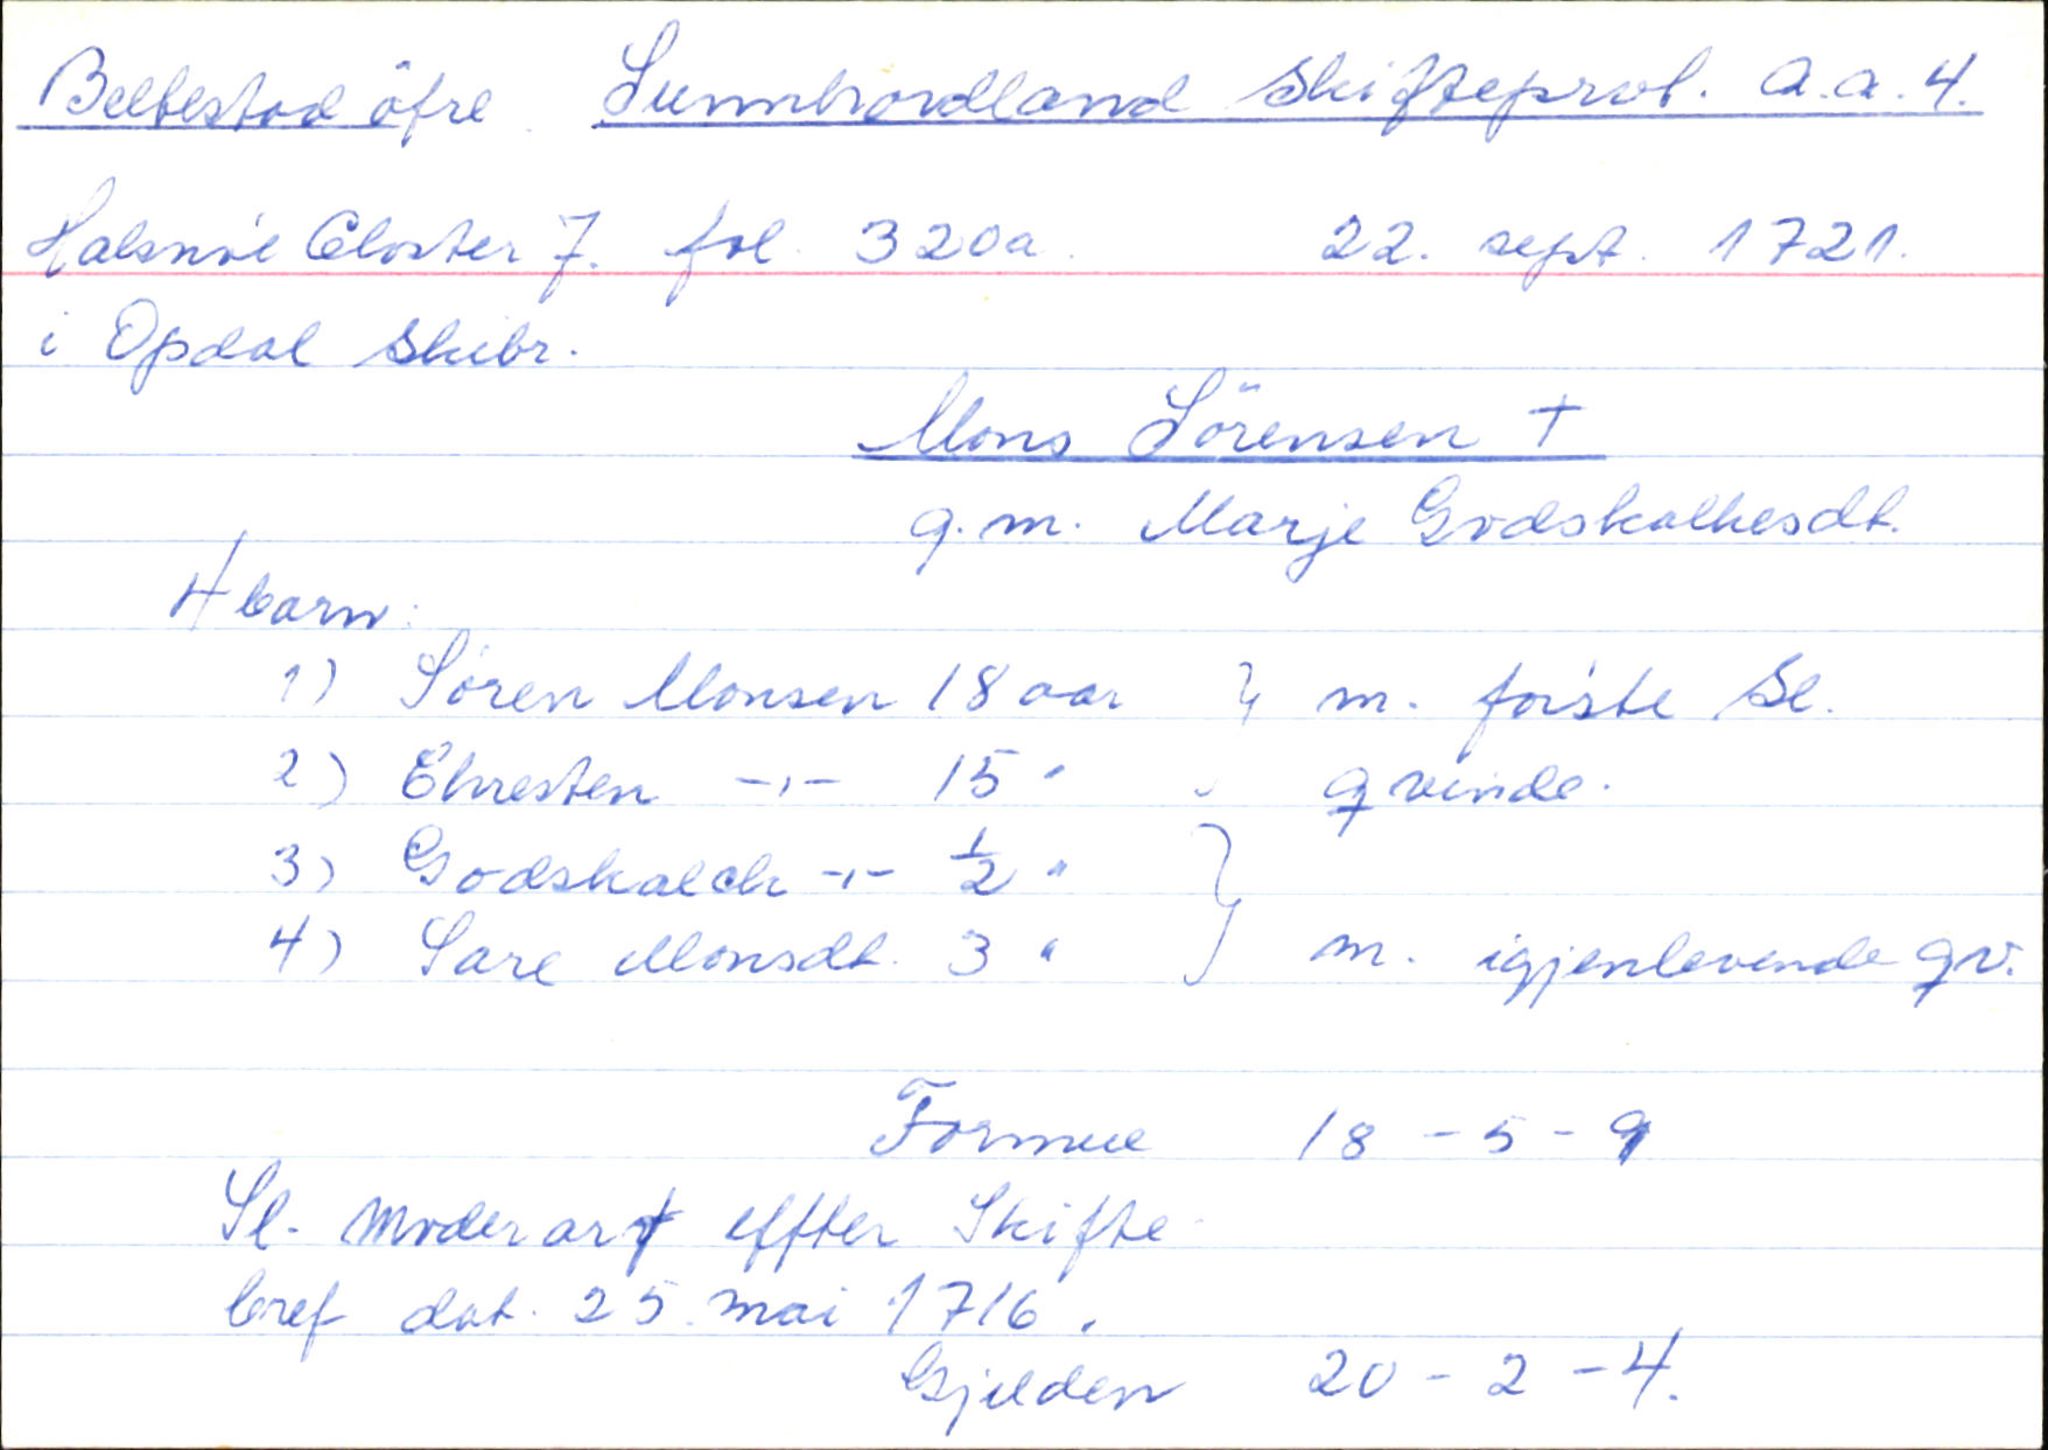 Belbestad öfre. Sunnhordland Skifteprot. a.a.4.
Halsnöe Closter J. fol. 320a. 22. sept. 1721.
i Opdal Skibr.
Mons Sörensen +
g.m. Marje Godskalkesdt.
4 barn:
1) Sören Monsen 18 aar } m. første Sl.
2) Chresten -,,- 15 " qvinde.
3) Godskalck -,,- 1/2 "
4) Sare Monsdt. 3 " } m. igjenlevende qv.
Formue 18 - 5 - 9
Sl. Moder arf effter Skifte
bref dat. 25. mai 1716.
Gjelden 20 - 2 - 4.